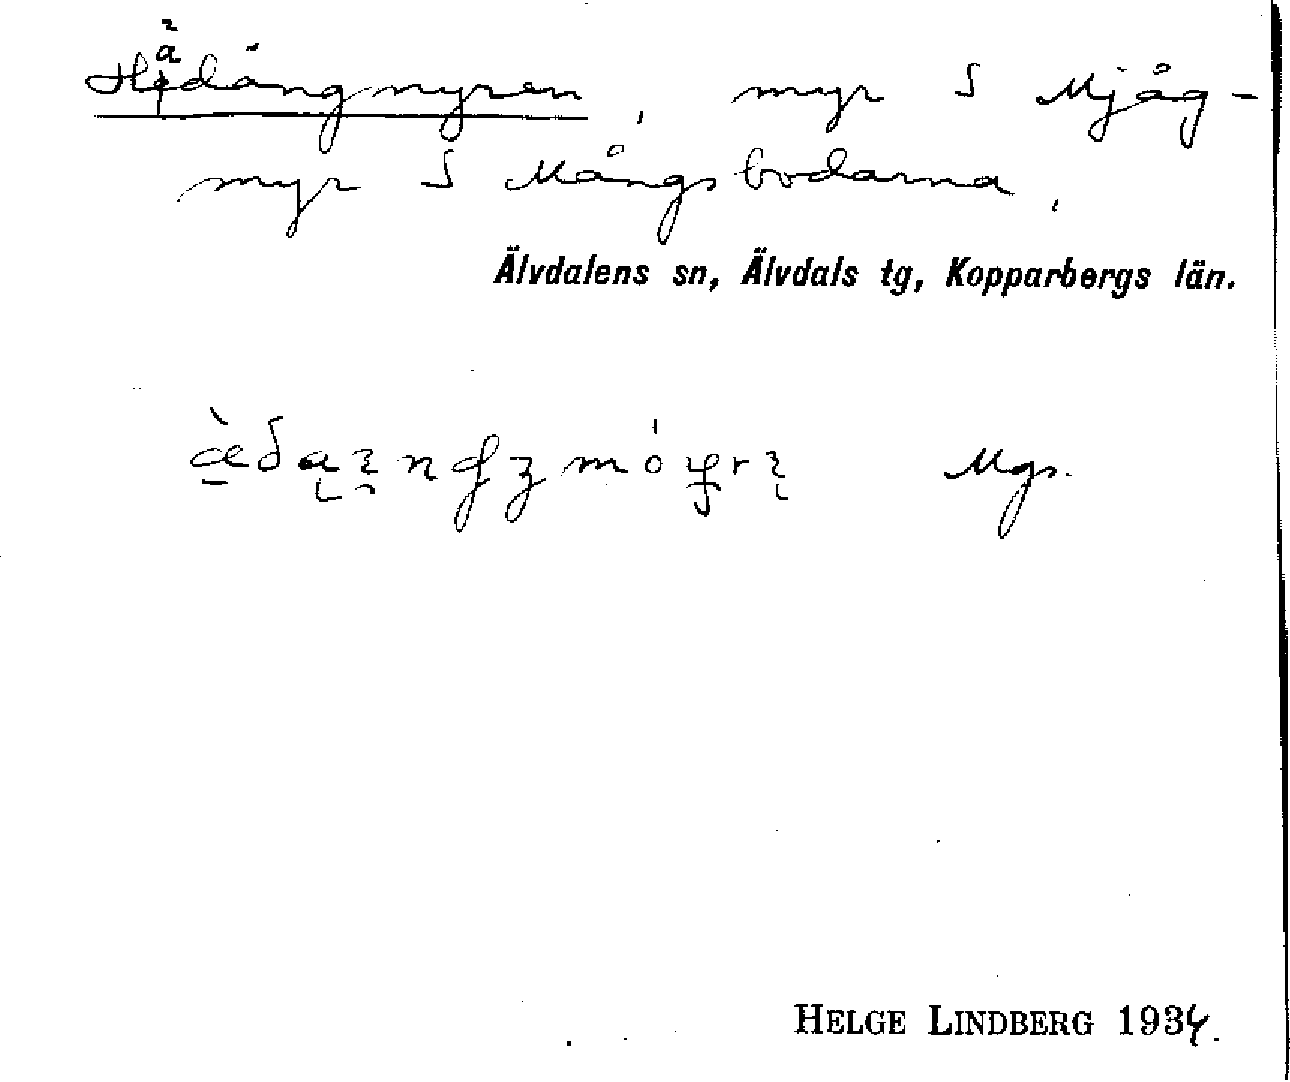 Hädängmyren, myr S Mjåg-
myr S Mångsbodarna,
Älvdalens sn, Älvdals tg, Kopparbergs län.
Mgs.
HELGE LINDBERG 1934.